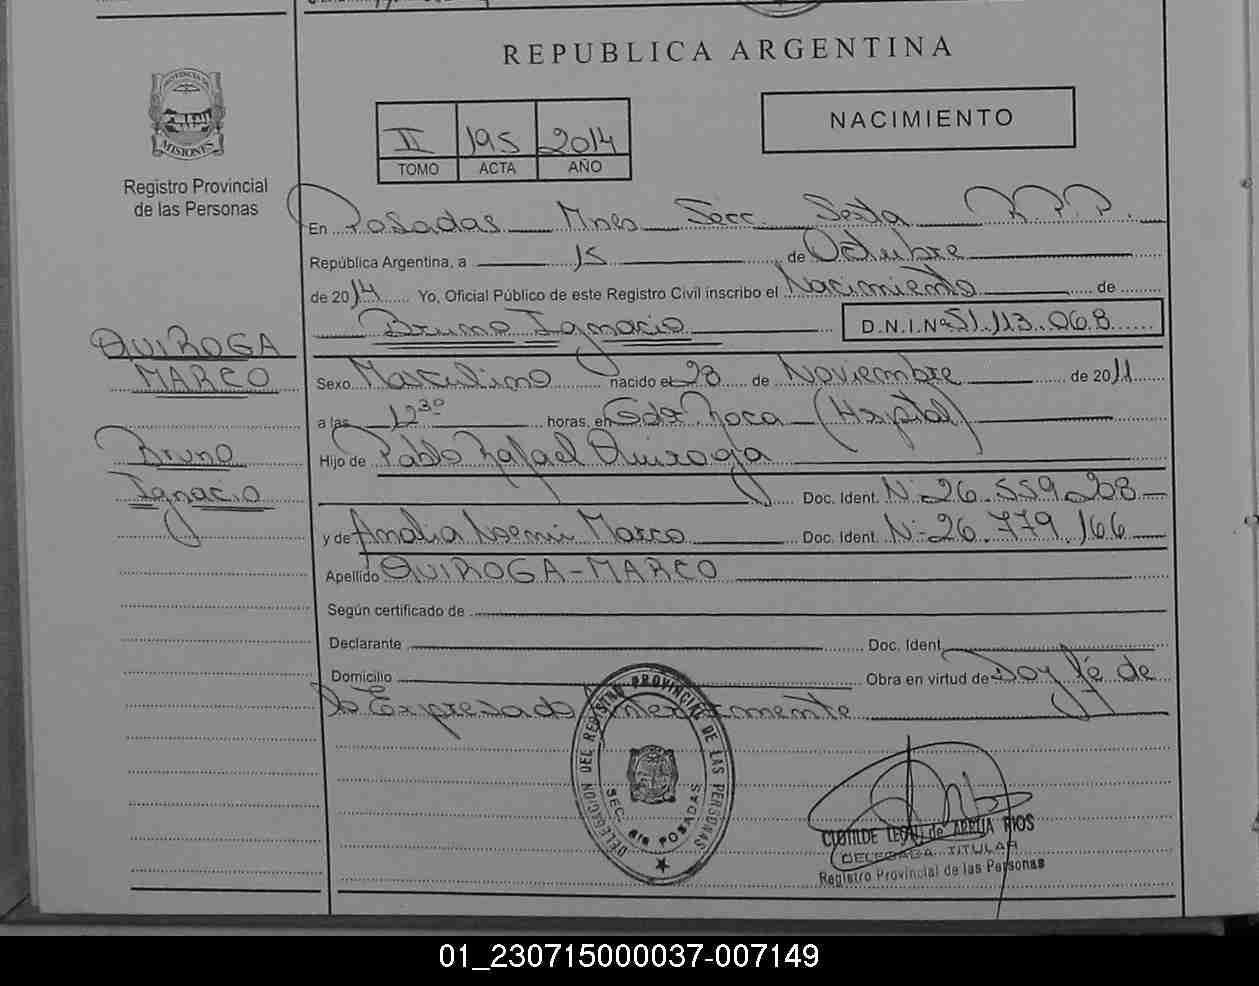 REPUBLICA ARGENTINA
PROVINCIA DE
MISIONES
Registro Provincial
de las Personas
II 195 2014
TOMO ACTA AÑO
NACIMIENTO
En Posadas Mnes Secc. Sexta R.P.P.
República Argentina, a 15 de Octubre
de 2014 Yo, Oficial Público de este Registro Civil inscribo el Nacimiento de
Bruno Ignacio D.N.I. Nº 51.113.068
QUIROGA
MARCO
Bruno
Ignacio
Sexo Masculino nacido el 28 de Noviembre de 2011
a las 12³⁰ horas, en Gdor Roca (Hospital)
Hijo de Pablo Rafael Quiroga
Doc. Ident. Nº 26.559.208
y de Amalia Noemi Marco Doc. Ident. Nº 26.779.166
Apellido QUIROGA-MARCO
Según certificado de
Declarante Doc. Ident.
Domicilio Obra en virtud de Doy fé de
lo Expresado Anteriormente
DELEGACION DEL REGISTRO PROVINCIAL DE LAS PERSONAS
SEC. 6ta POSADAS
CLOTILDE de RIOS
DELEGADA TITULAR
Registro Provincial de las Personas
01_230715000037-007149